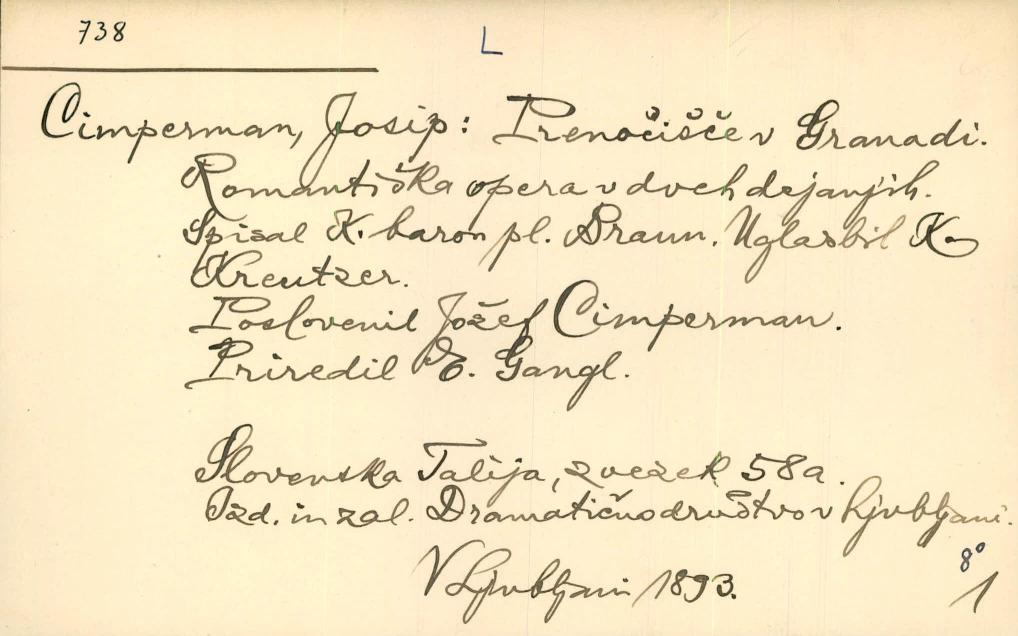 738
L
Cimperman, Josip: Prenočišče v Granadi.
Romantiška opera v dveh dejanjih.
Spisal K. baron pl. Braun. Uglasbil K.
Kreutzer.
Poslovenil Jožef Cimperman.
Priredil E. Gangl.
Slovenska Talija, zvezek 58a.
Izd. in zal. Dramatično društvo v Ljubljani.
V Ljubljani 1893.
8°
1